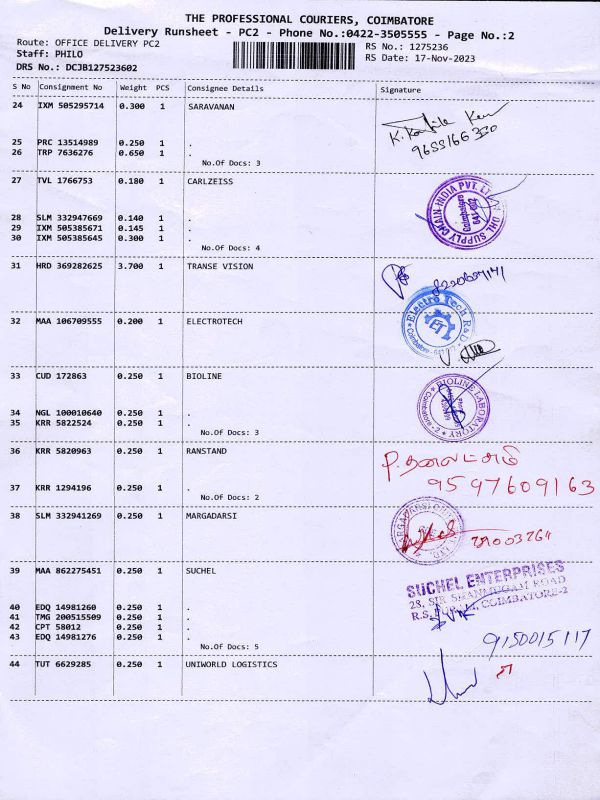 THE PROFESSIONAL COURIERS, COIMBATORE
Delivery Runsheet - PC2 - Phone No.:0422-3505555 - Page No.:2
Route: OFFICE DELIVERY PC2 RS No.: 1275236
Staff: PHILO RS Date: 17-Nov-2023
DRS No.: DCJB127523602
S No Consignment No Weight PCS Consignee Details Signature
24 IXM 505295714 0.300 1 SARAVANAN
9655166330
25 PRC 13514989 0.250 1 .
26 TRP 7636276 0.650 1 .
No.Of Docs: 3
27 TVL 1766753 0.180 1 CARLZEISS
DHL SUPPLY CHAIN INDIA PVT. LTD.
Coimbatore
641 402
28 SLM 332947669 0.140 1 .
29 IXM 505385671 0.145 1 .
30 IXM 505385645 0.300 1 .
No.Of Docs: 4
31 HRD 369282625 3.700 1 TRANSE VISION
32 MAA 106709555 0.200 1 ELECTROTECH
Electro Tech R&D
ET
Coimbatore
33 CUD 172863 0.250 1 BIOLINE
BIOLINE LABORATORY
Coimbatore - 2
34 NGL 100010640 0.250 1 .
35 KRR 5822524 0.250 1 .
No.Of Docs: 3
36 KRR 5820963 0.250 1 RANSTAND
9597609163
37 KRR 1294196 0.250 1 .
No.Of Docs: 2
38 SLM 332941269 0.250 1 MARGADARSI
39 MAA 862275451 0.250 1 SUCHEL
SUCHEL ENTERPRISES
28, SIR SHANMUGAM ROAD
R.S. PURAM, COIMBATORE-2
40 EDQ 14981260 0.250 1 .
41 TMG 200515509 0.250 1 .
42 CPT 58012 0.250 1 .
43 EDQ 14981276 0.250 1 .
9150015117
No.Of Docs: 5
44 TUT 6629285 0.250 1 UNIWORLD LOGISTICS